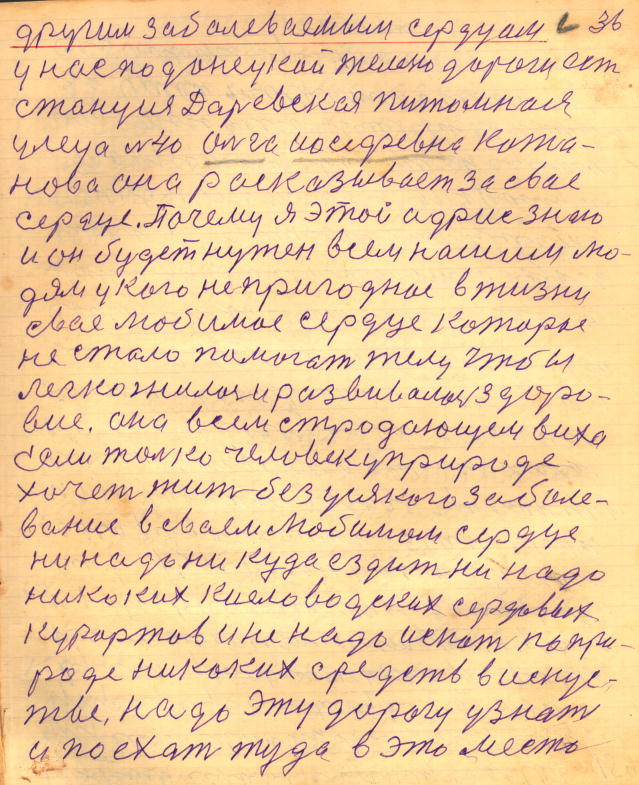 другим заболеваемым сердцам 36
у нас по донецкой железно дороги ест
станция Даревская питомная
улеца №40 олга иосифревна Кожа-
нова она росказывает за свае
сердце. Почему я этой адрис знаю
и он будет нужен всем нашим лю-
дям у кого не пригодное в жизни
свае любимое сердце которые
не стало помогат телу чтобы
легко жилося и развивалося здоро-
вие. она всем стродающем виха
Если толко человек у природе
хочет жит без усякого заболе-
вание в сваем любимом сердце
ни надо ни куда ездит ни надо
никоких кисловодских сердовых
курортов и не надо искат по при-
роде никоких средств в искус-
тве, надо эту дорогу узнат
и поехат туда в это место